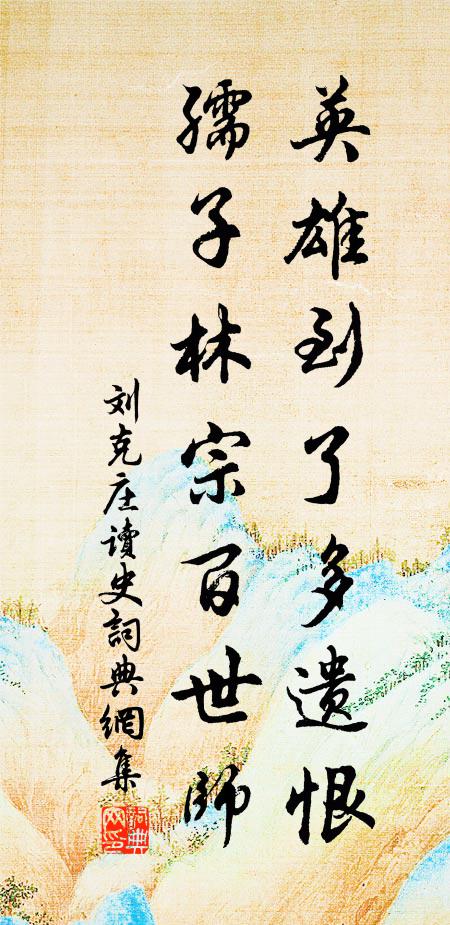 英雄到了多遗恨
孺子林宗百世師
刘克庄讀史詞典網集
詞典网印